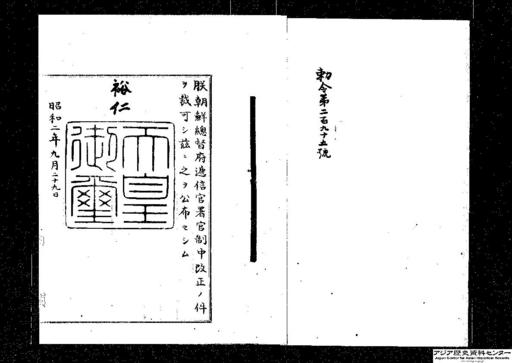 勅令第二百九十五號
朕朝鮮總督府遞信官署官制中改正ノ件
ヲ裁可シ玆ニ之ヲ公布セシム
裕仁
天皇
御璽
昭和二年九月二十九日
アジア歴史資料センター
Japan Center for Asian Historical Records